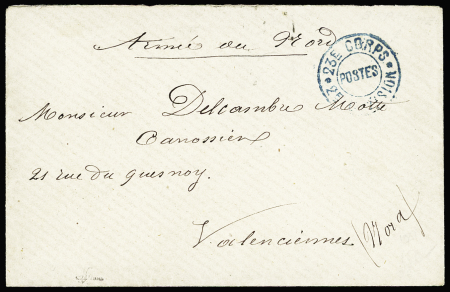 Armée du Nord
23E CORPS
POSTES
Monsieur Delcambre Motte
21 rue du quesnoy.
Valenciennes (Nord)